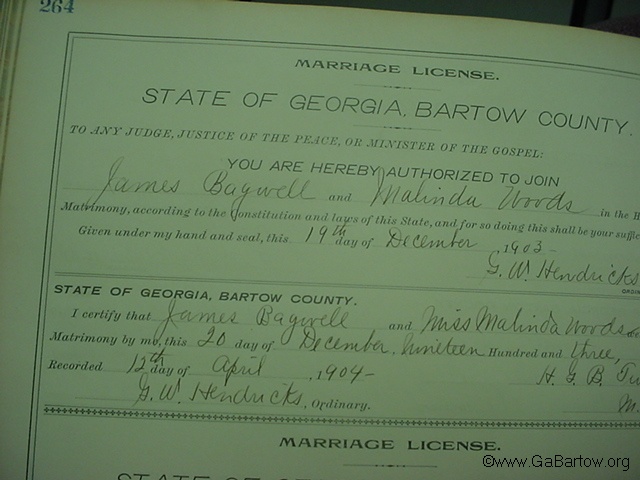 264
MARRIAGE LICENSE.
STATE OF GEORGIA, BARTOW COUNTY.
TO ANY JUDGE, JUSTICE OF THE PEACE, OR MINISTER OF THE GOSPEL:
YOU ARE HEREBY AUTHORIZED TO JOIN
James Bagwell and Malinda Woods in the H
Matrimony, according to the Constitution and laws of this State, and for so doing this shall be your suffic
Given under my hand and seal, this 19th day of December, 1903-
G. W. Hendricks
STATE OF GEORGIA, BARTOW COUNTY.
I certify that James Bagwell and Miss Malinda Woods
Matrimony by me, this 20 day of December, Nineteen Hundred and three,
Recorded 12th day of April, 1904- H. G. B. Tu
G. W. Hendricks, Ordinary. M.
MARRIAGE LICENSE.
©www.GaBartow.org